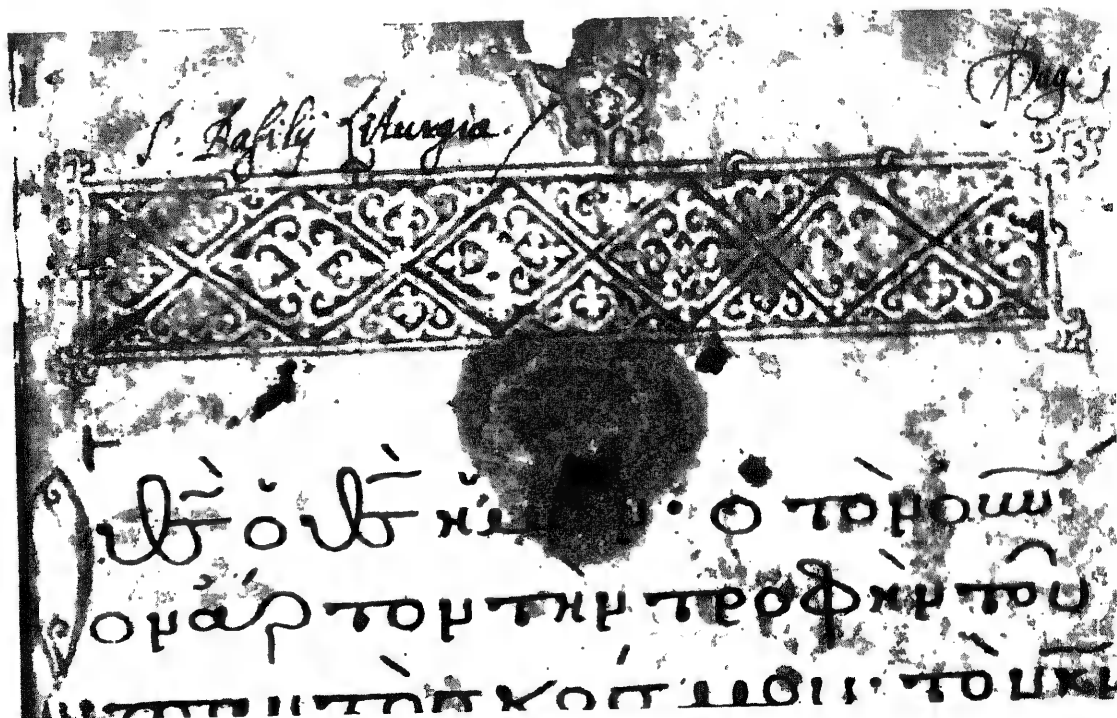 S. Basilij Liturgia.
Pag. 1
Ὁ θ̅ς̅ ὁ θ̅ς̅ ὁ τὸν
ον ἄρτον τὴν τροφὴν τοῦ
παντὸς κόσμου· τὸν κ̅ν̅